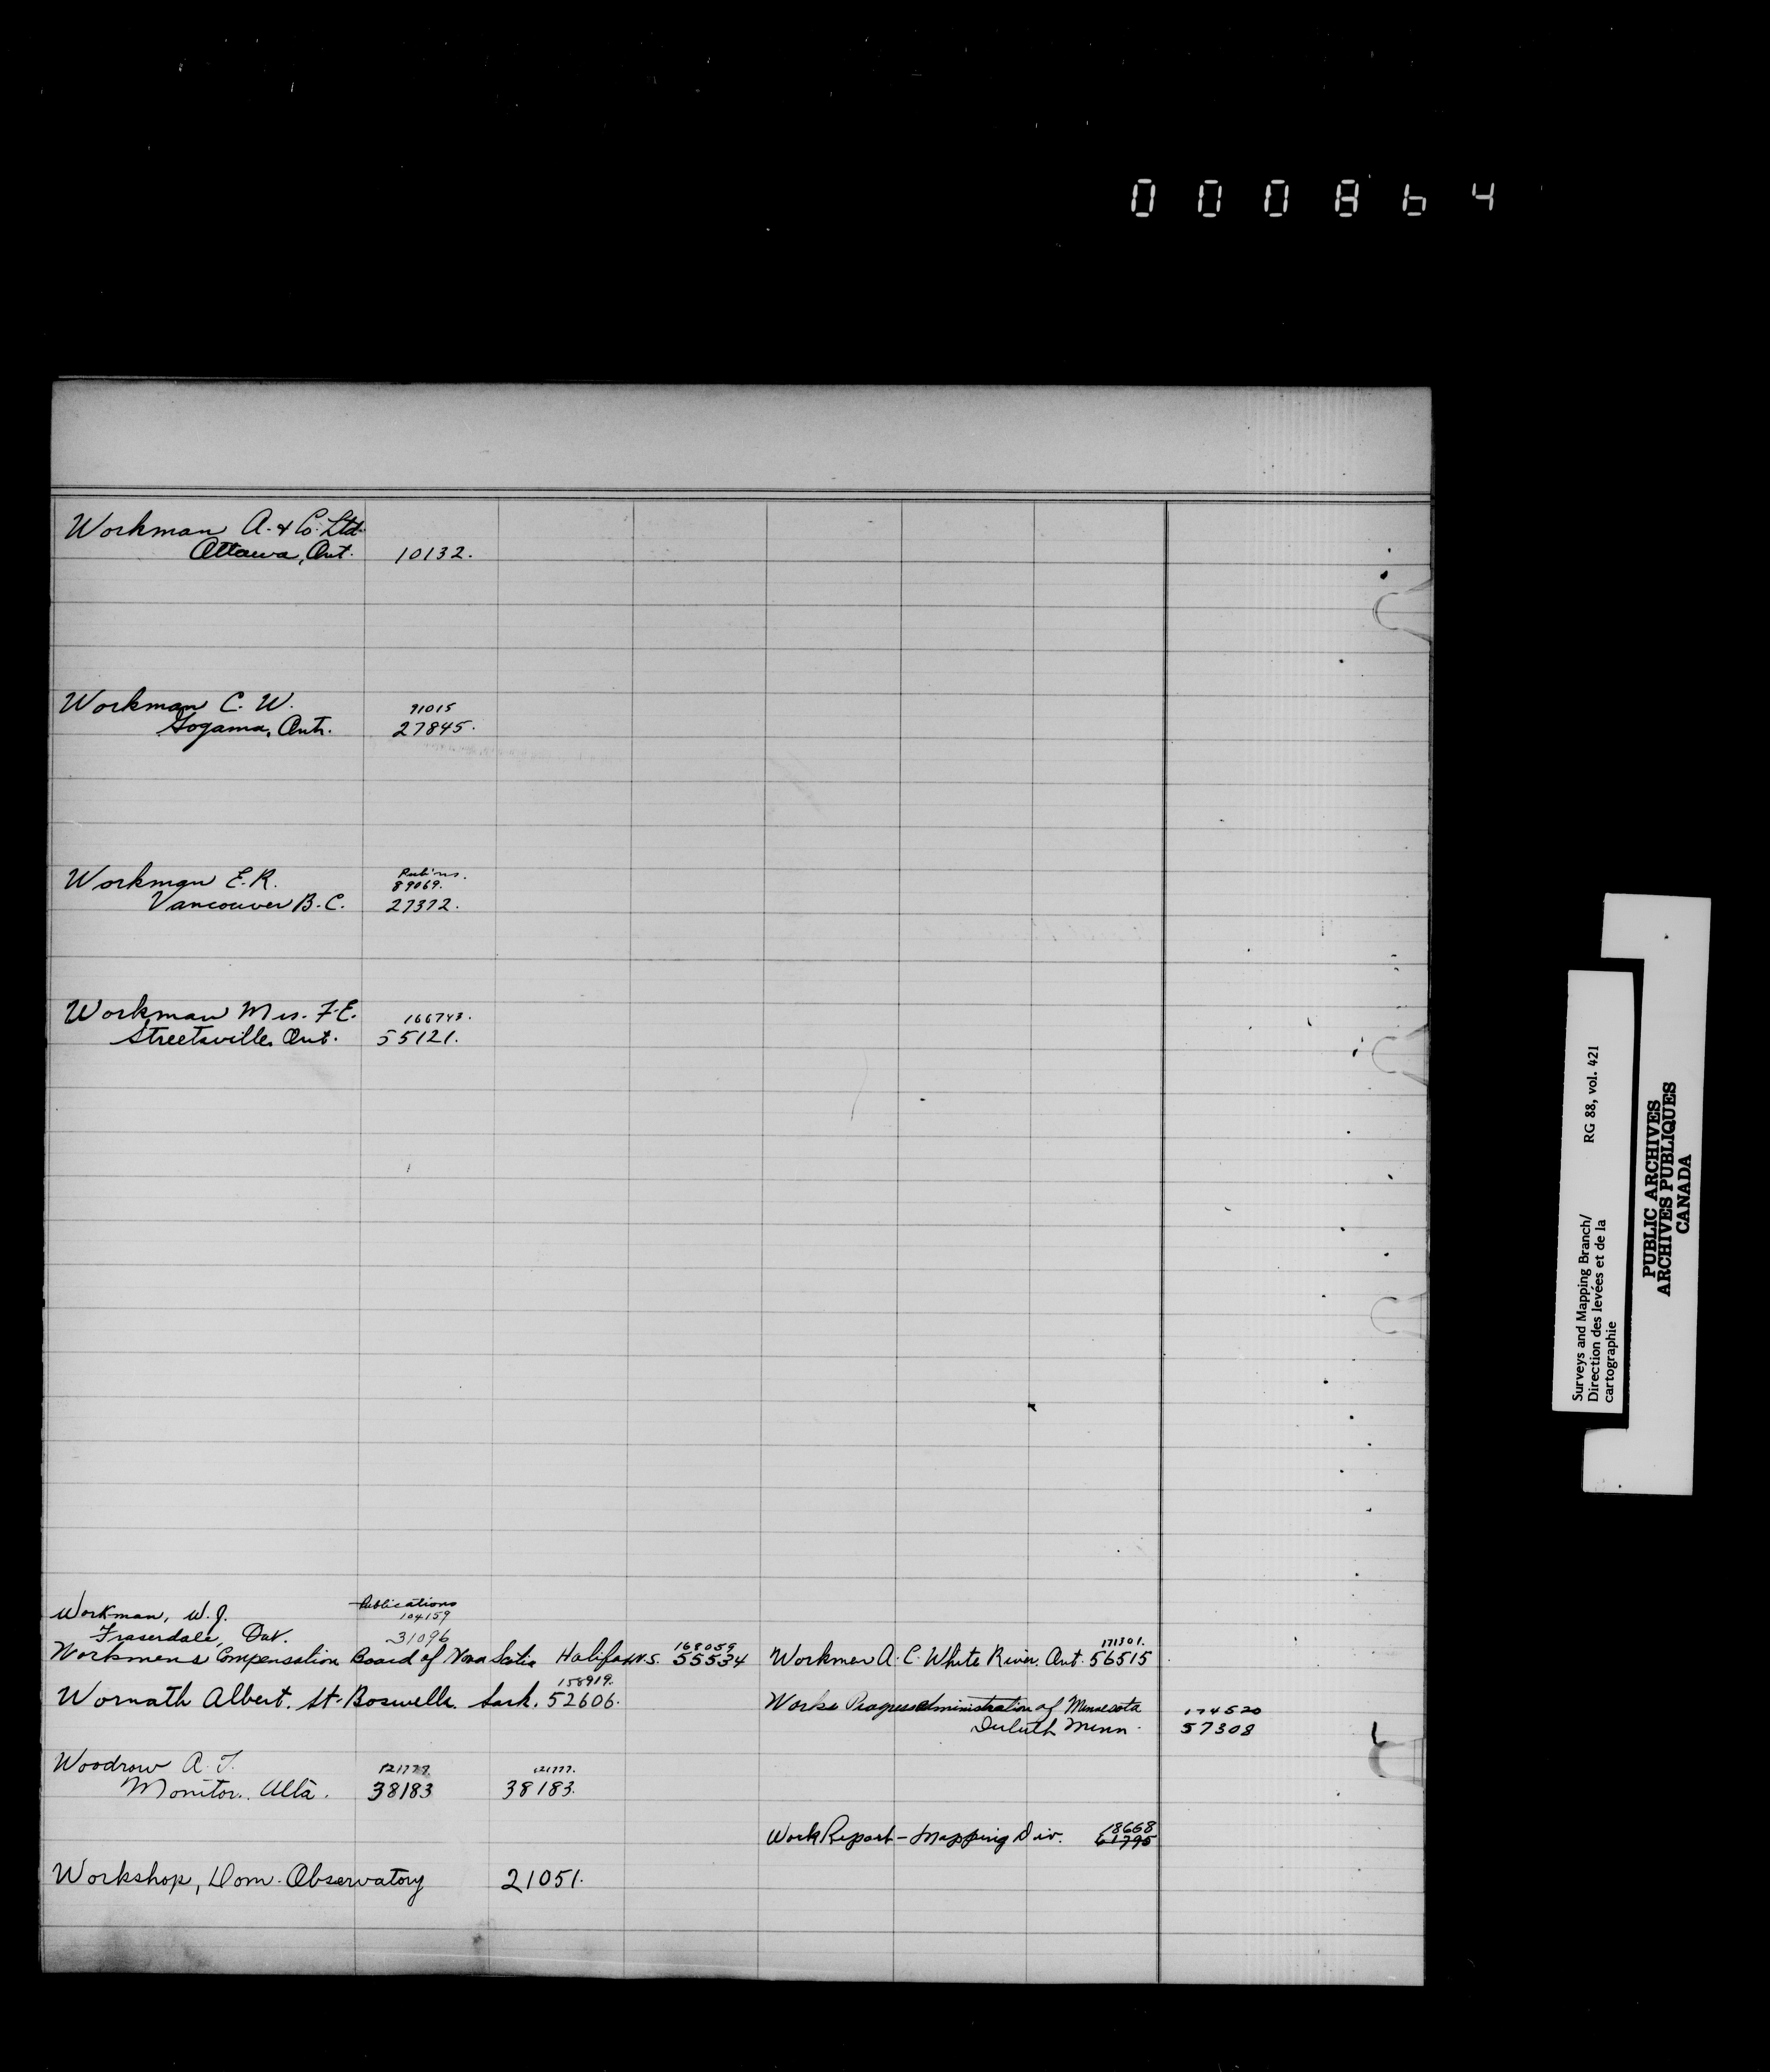 000864
Workman A. & Co. Ltd.
Ottawa, Ont. 10132.
Workman C. W. 91015
Gogama, Ont. 27845.
Workman E. R. 89069.
Vancouver B.C. 27372.
Workman Mrs. F. E. 166743.
Streetsville Ont. 55121.
Workman, W. J. Publications
104159
Fraserdale, Ont. 31096
168059 171301.
Workmens Compensation Board of Nova Scotia Halifax N.S. 55534 Workman A. C. White River, Ont. 56515
158919.
Wornath Albert. St. Boswells. Sask. 52606. Works Progress Administration of Minnesota 174520
Duluth Minn. 57308
Woodrow A. T. 121777. 121777.
Monitor. Alta. 38183 38183.
18668
Work Report - Mapping Div. 61795
Workshop, Dom. Observatory 21051.
Surveys and Mapping Branch/ RG 88, vol. 421
Direction des levées et de la
cartographie
PUBLIC ARCHIVES
ARCHIVES PUBLIQUES
CANADA